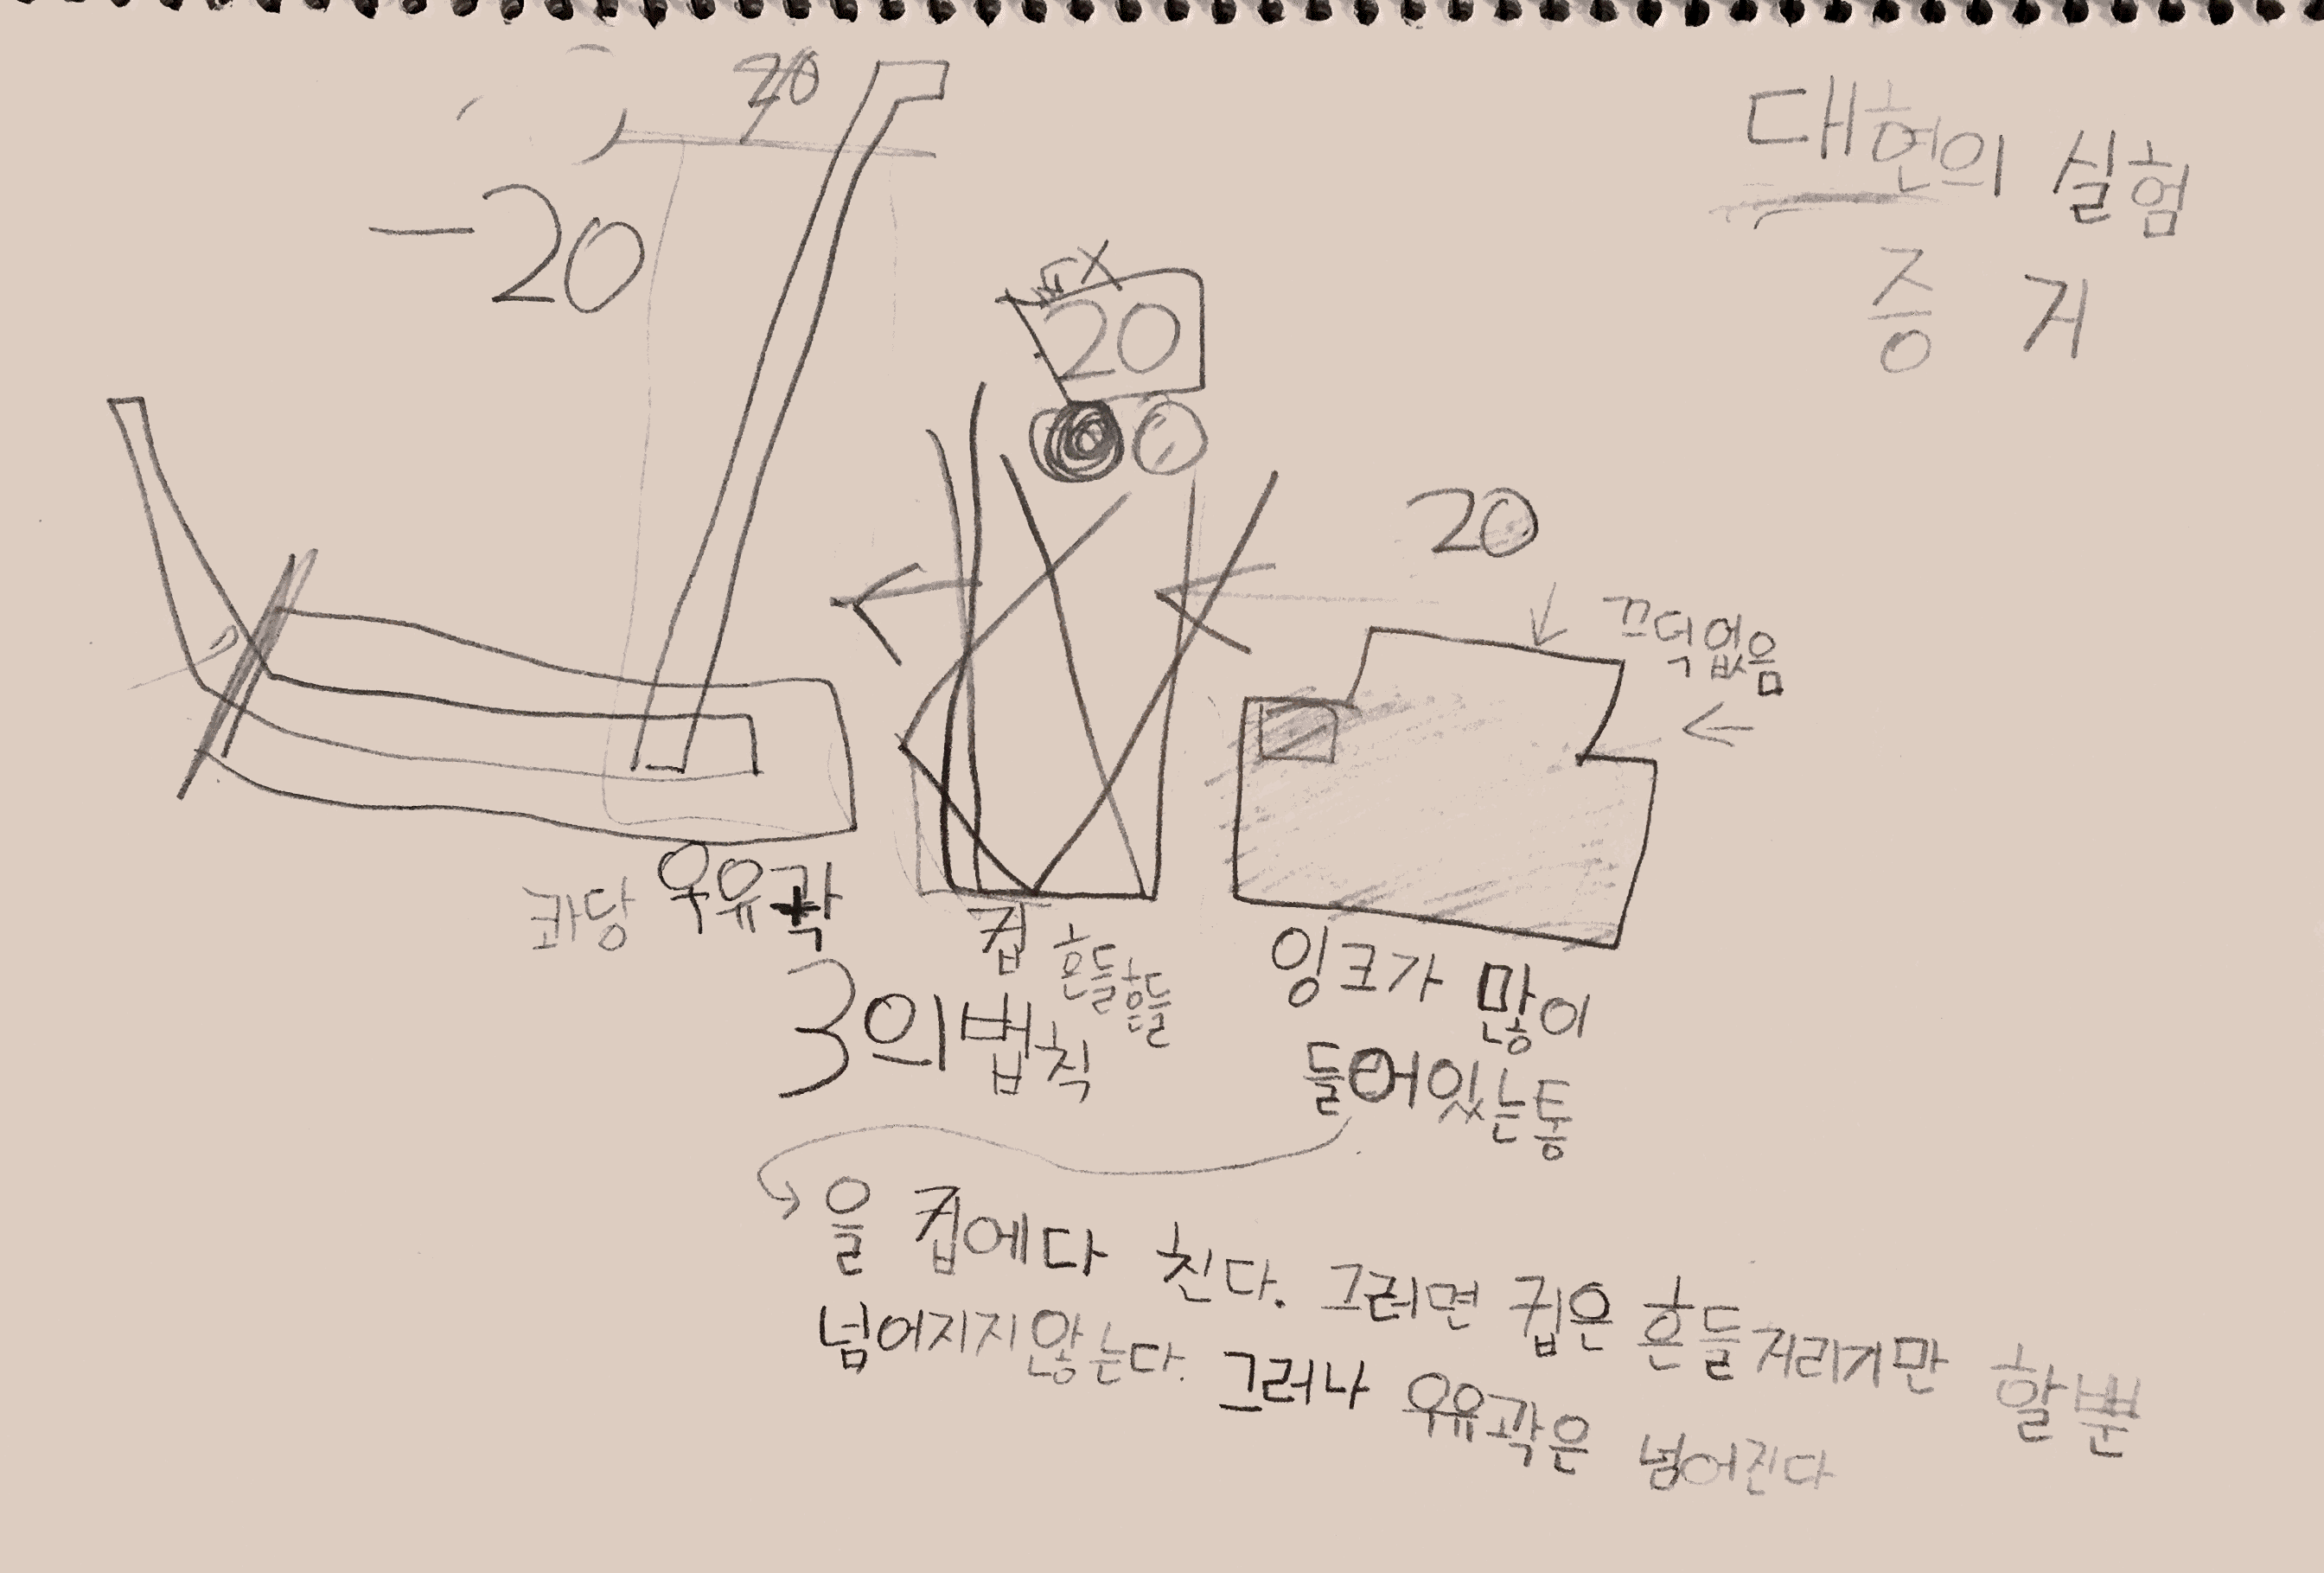 대현의 실험
증거
20
-20
20
20
끄덕없음
콰당 우유곽
컵 흔들흔들
3의법칙
잉크가 많이
들어있는통
을 컵에다 친다. 그러면 컵은 흔들거리기만 할뿐
넘어지지않는다. 그러나 우유곽은 넘어진다